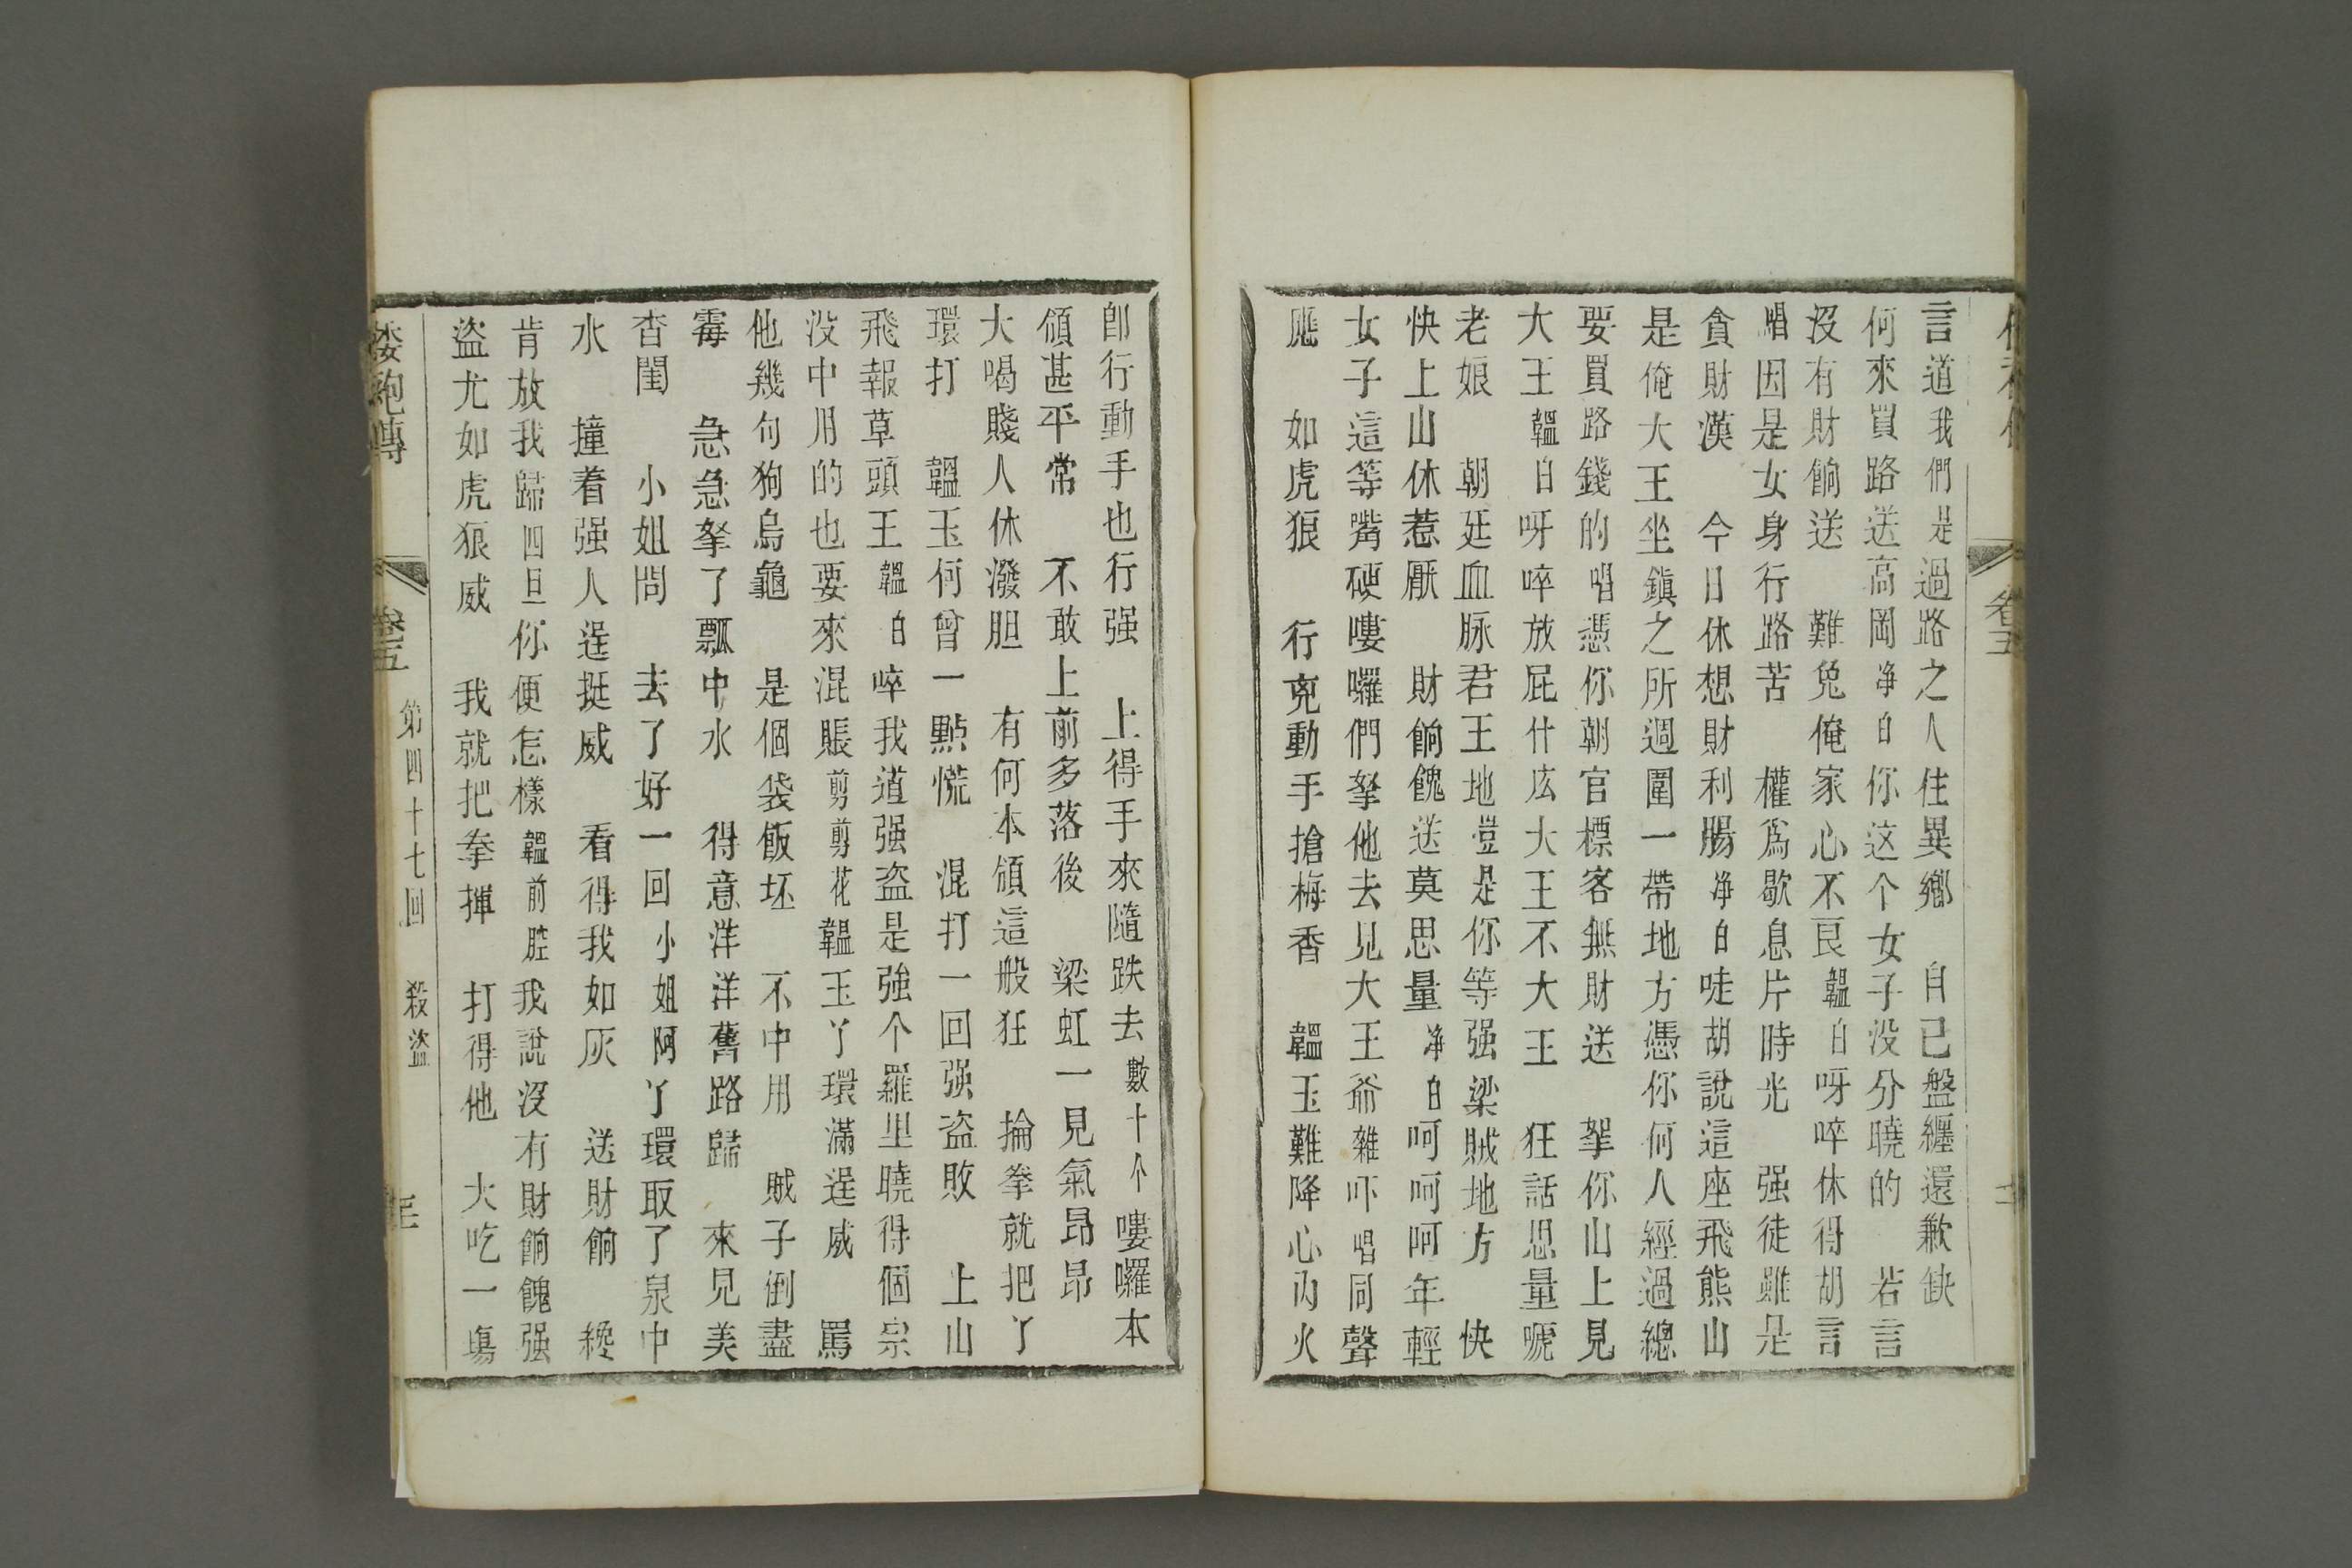 言道我們是過路之人住異鄉　自已盤纏還歉缺
何來買路送高岡净白你这个女子没分曉的　若言
沒有財餉送　難免俺家心不良韞白呀啐休得胡言
唱因是女身行路苦　權爲歇息片時光　强徒雖是
貪財漢　今日休想財利腸净白唗胡說這座飛熊山
是俺大王坐鎮之所週圍一帶地方憑你何人經過總
要買路錢的唱憑你朝官標客無財送　拏你山上見
大王韞白呀啐放屁什広大王不大王　狂話思量唬
老娘　朝廷血脉君王地豈是你等强梁賊地方　快
快上山休惹厭　財餉餽送莫思量净白呵呵呵年輕
女子這等嘴硬嘍囉們拏他去見大王爺雜吓唱同聲
應　如虎狼　行兇動手搶梅香　韞玉難降心內火
卽行動手也行强　上得手來隨跌去數十个嘍囉本
領甚平常　不敢上前多落後　梁虹一見氣昂昂
大喝賤人休潑胆　有何本領這般狂　掄拳就把丫
環打　韞玉何曾一點慌　混打一回强盗敗　上山
飛報草頭王韞白啐我道强盗是強个羅里曉得個宗
没中用的也要來混賬剪剪花韞玉丫環滿逞威　罵
他幾句狗烏龜　是個袋飯坯　不中用　賊子倒盡
霉　急急拏了瓢中水　得意洋洋舊路歸　來見美
杏閨　小姐問　去了好一回小姐阿丫環取了泉中
水　撞着强人逞挺威　看得我如灰　送財餉　纔
肯放我歸四旦你便怎樣韞前腔我說沒有財餉餽强
盜尤如虎狼威　我就把拳揮　打得他　大吃一塲
卷五
第四十七回　殺盜
卷五